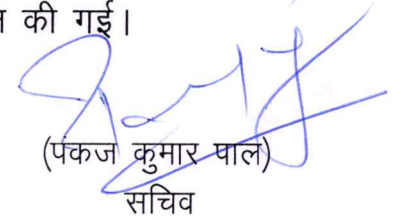 की गई।
(पंकज कुमार पाल)
सचिव